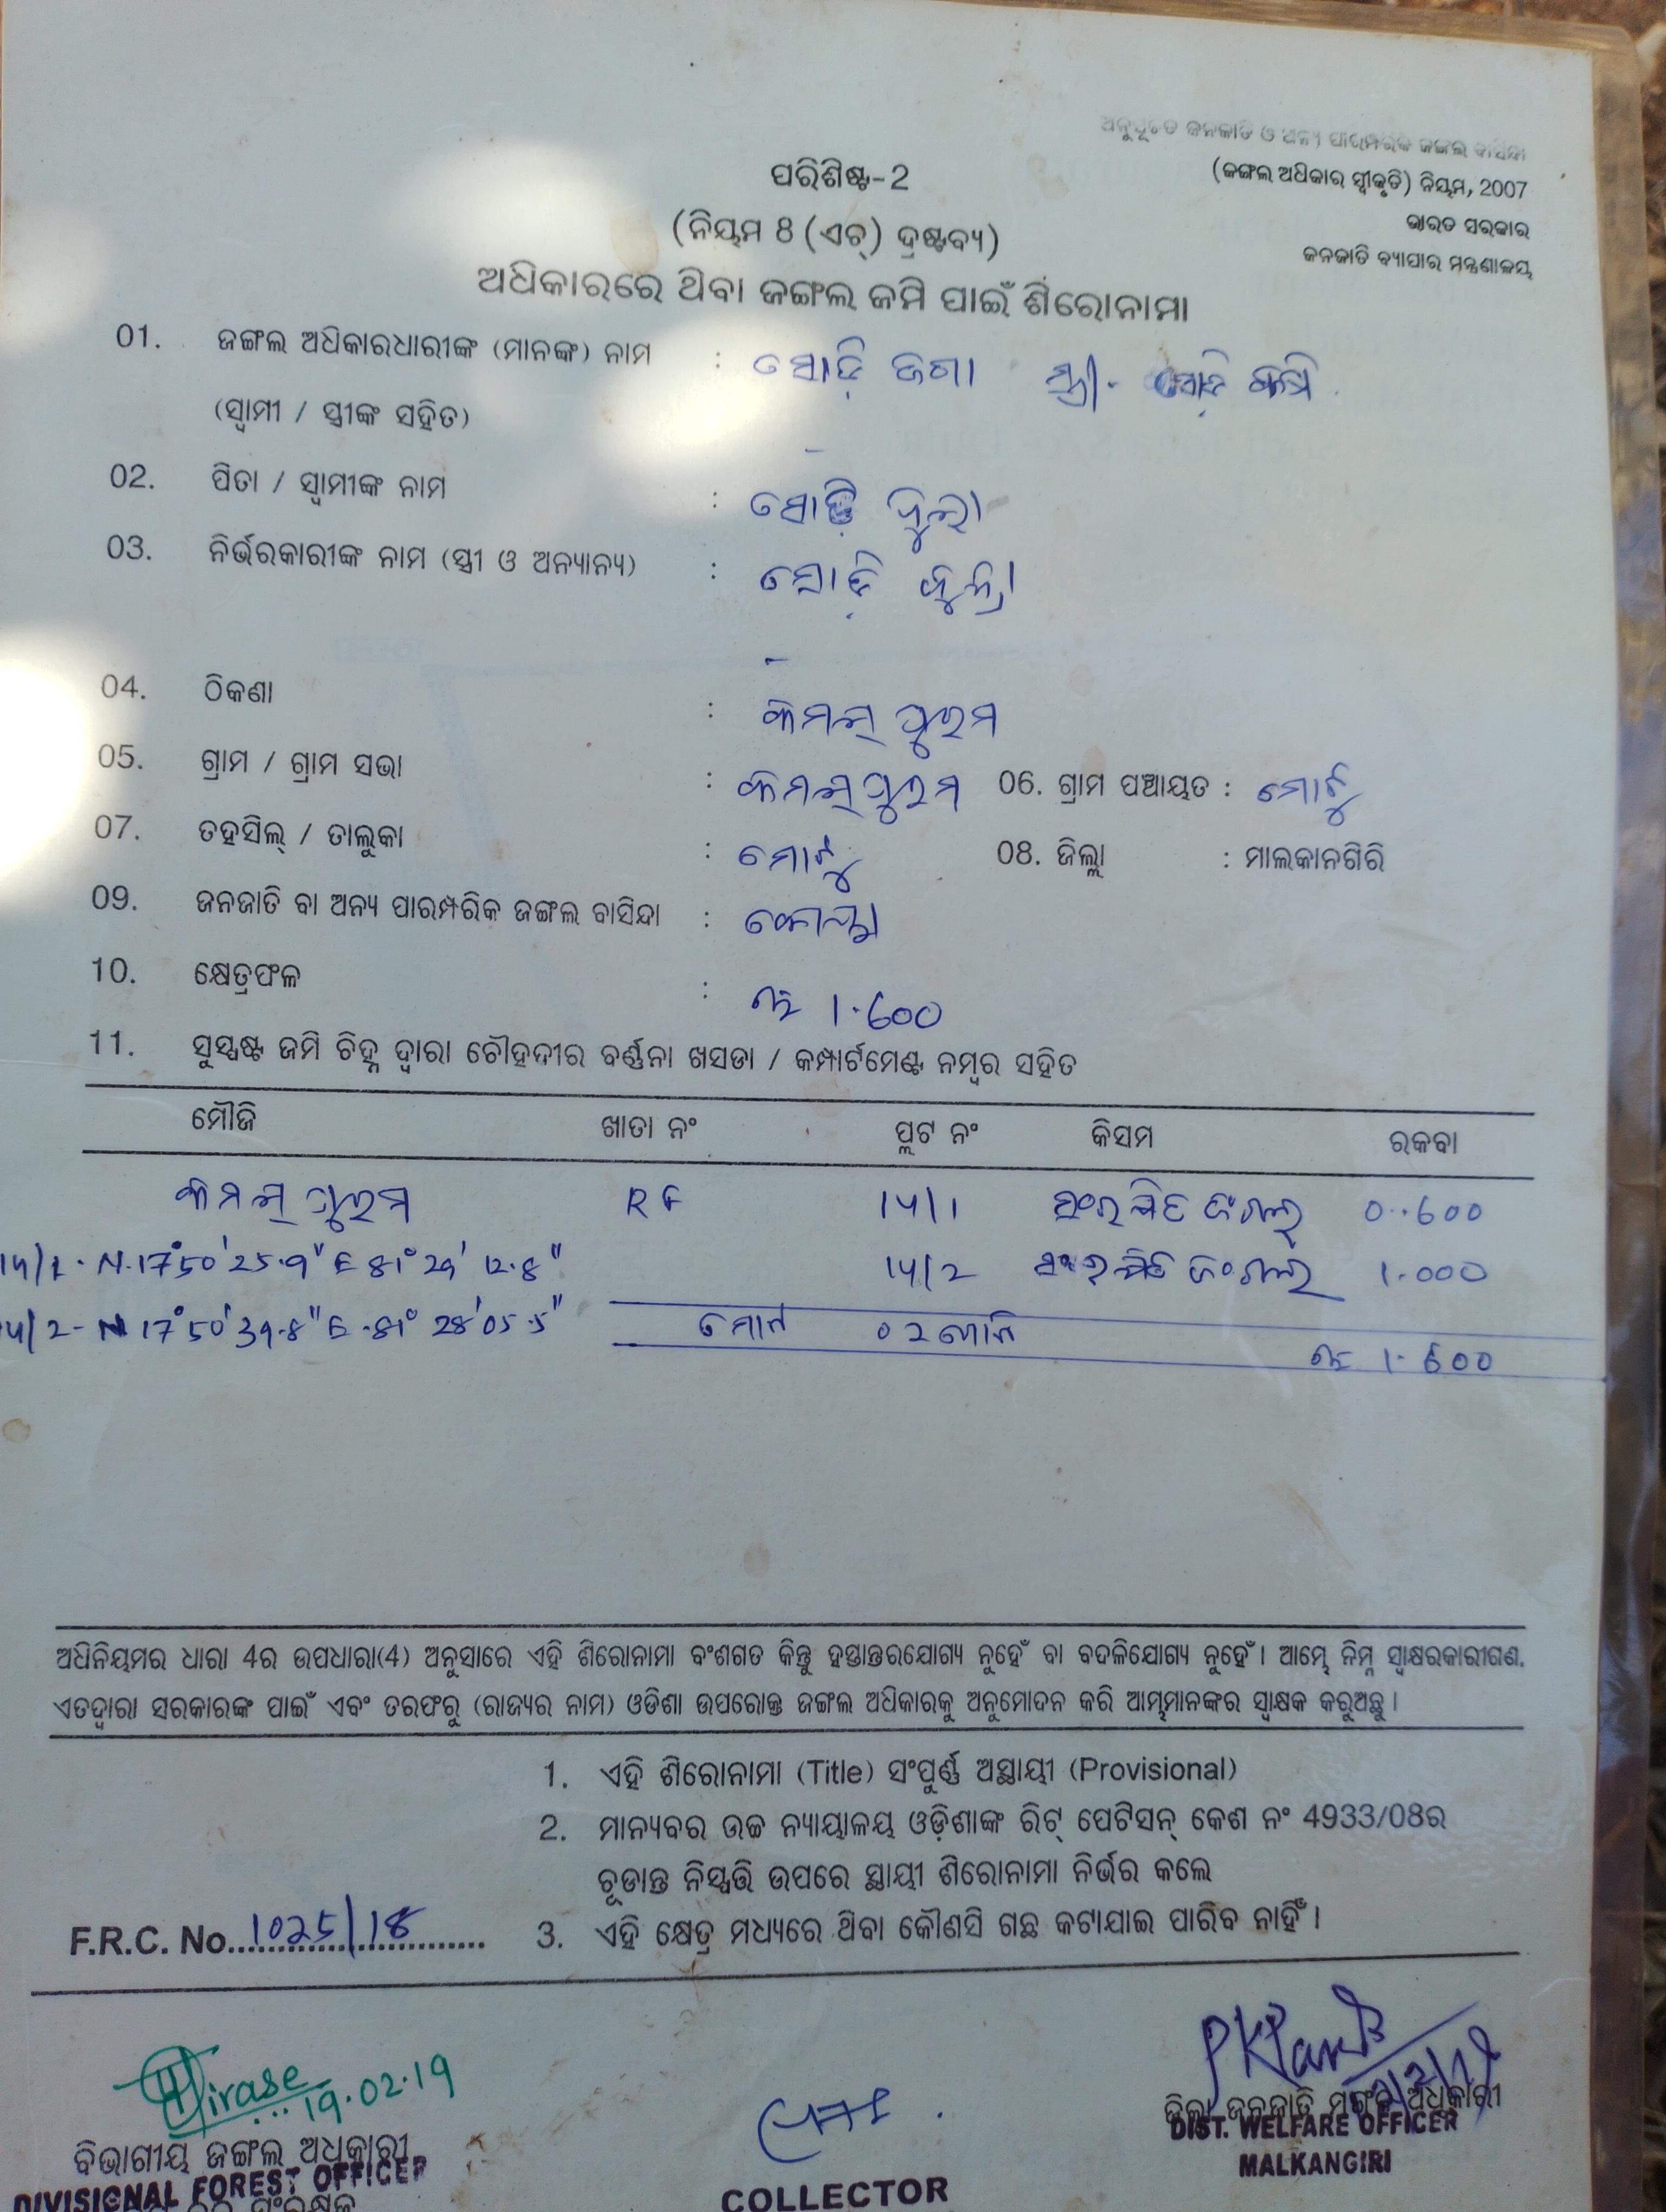 ଅନୁସୂଚିତ ଜନଜାତି ଓ ଅନ୍ୟ ପାରମ୍ପରିକ ଜଙ୍ଗଲ ବାସିନ୍ଦା
(ଜଙ୍ଗଲ ଅଧିକାର ସ୍ୱୀକୃତି) ନିୟମ, 2007
ଭାରତ ସରକାର
ଜନଜାତି ବ୍ୟାପାର ମନ୍ତ୍ରଣାଳୟ
ପରିଶିଷ୍ଟ-2
(ନିୟମ 8 (ଏଚ୍) ଦ୍ରଷ୍ଟବ୍ୟ)
ଅଧିକାରରେ ଥିବା ଜଙ୍ଗଲ ଜମି ପାଇଁ ଶିରୋନାମା
01. ଜଙ୍ଗଲ ଅଧିକାରଧାରୀଙ୍କ (ମାନଙ୍କ) ନାମ : ସୋଢ଼ି ଜଗା ସ୍ତ୍ରୀ- ସୋଢ଼ି
(ସ୍ୱାମୀ / ସ୍ତ୍ରୀଙ୍କ ସହିତ)
02. ପିତା / ସ୍ୱାମୀଙ୍କ ନାମ : ସୋଢ଼ି
03. ନିର୍ଭରକାରୀଙ୍କ ନାମ (ସ୍ତ୍ରୀ ଓ ଅନ୍ୟାନ୍ୟ) : ସୋଢ଼ି
04. ଠିକଣା :
05. ଗ୍ରାମ / ଗ୍ରାମ ସଭା : 06. ଗ୍ରାମ ପଞ୍ଚାୟତ : ମୋଟୁ
07. ତହସିଲ୍ / ତାଲୁକା : ମୋଟୁ 08. ଜିଲ୍ଲା : ମାଲକାନଗିରି
09. ଜନଜାତି ବା ଅନ୍ୟ ପାରମ୍ପରିକ ଜଙ୍ଗଲ ବାସିନ୍ଦା : କୋୟା
10. କ୍ଷେତ୍ରଫଳ : 1.600
11. ସୁସ୍ପଷ୍ଟ ଜମି ଚିହ୍ନ ଦ୍ୱାରା ଚୌହଦୀର ବର୍ଣ୍ଣନା ଖସଡା / କମ୍ପାର୍ଟମେଣ୍ଟ ନମ୍ବର ସହିତ
ମୌଜି ଖାତା ନଂ ପ୍ଲଟ ନଂ କିସମ ରକବା
RF 14/1 ସଂରକ୍ଷିତ ଜଂଗଲ 0.600
14/1- N-17°50'25.9" E 81° 29' 12.8" 14/2 ସଂରକ୍ଷିତ ଜଂଗଲ 1.000
14/2- N 17°50'39.8" E-81° 28'05.5" ମୋଟ 02 1.600
ଅଧିନିୟମର ଧାରା 4ର ଉପଧାରା(4) ଅନୁସାରେ ଏହି ଶିରୋନାମା ବଂଶଗତ କିନ୍ତୁ ହସ୍ତାନ୍ତରଯୋଗ୍ୟ ନୁହେଁ ବା ବଦଳିଯୋଗ୍ୟ ନୁହେଁ। ଆମ୍ଭେ ନିମ୍ନ ସ୍ୱାକ୍ଷରକାରୀଗଣ.
ଏତଦ୍ୱାରା ସରକାରଙ୍କ ପାଇଁ ଏବଂ ତରଫରୁ (ରାଜ୍ୟର ନାମ) ଓଡିଶା ଉପରୋକ୍ତ ଜଙ୍ଗଲ ଅଧିକାରକୁ ଅନୁମୋଦନ କରି ଆମ୍ଭମାନଙ୍କର ସ୍ୱାକ୍ଷକ କରୁଅଛୁ।
1. ଏହି ଶିରୋନାମା (Title) ସଂପୁର୍ଣ୍ଣ ଅସ୍ଥାୟୀ (Provisional)
2. ମାନ୍ୟବର ଉଚ୍ଚ ନ୍ୟାୟାଳୟ ଓଡ଼ିଶାଙ୍କ ରିଟ୍ ପେଟିସନ୍ କେଶ ନଂ 4933/08ର
ଚୂଡାନ୍ତ ନିସ୍ପତ୍ତି ଉପରେ ସ୍ଥାୟୀ ଶିରୋନାମା ନିର୍ଭର କଲେ
F.R.C. No. 1025/18 3. ଏହି କ୍ଷେତ୍ର ମଧ୍ୟରେ ଥିବା କୌଣସି ଗଛ କଟାଯାଇ ପାରିବ ନାହିଁ।
19.02.19
ବିଭାଗୀୟ ଜଙ୍ଗଲ ଅଧିକାରୀ
DIVISIONAL FOREST OFFICER
COLLECTOR
ଜିଲ୍ଲା ଜନଜାତି ମଙ୍ଗଳ ଅଧିକାରୀ
DIST. WELFARE OFFICER
MALKANGIRI